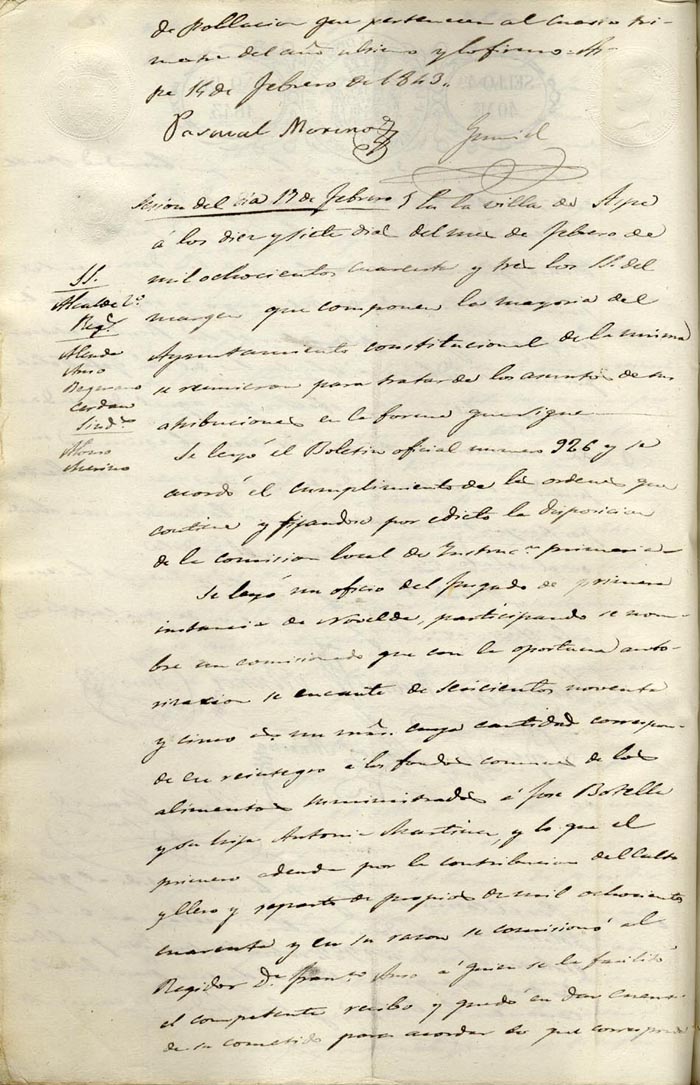 de poblacion que pertenecen al cuarto tri-
mestre del año ultimo y lo firmo. As-
pe 14 de febrero de 1843.
Pascual Morino
SELLO 4º
40 MS
1843
Sesion del dia 17 de febrero } En la villa de Aspe
á los diez y siete dias del mes de febrero de
mil ochocientos cuarenta y tres los SS. del
margen que componen la mayoria del
Ayuntamiento constitucional de la misma
se reunieron para tratar de los asuntos de sus
atribuciones en la forma que sigue
SS.
Alcalde 2º
Regs
Almda
Auso
Cerdan
Sinds
Alonso
Merino
Se leyó el Boletin oficial numero 926 y se
acordó el cumplimiento de las ordenes que
contiene y fijandose por edicto la disposicion
de la comision local de Instrucn primaria
Se leyó un oficio del juzgado de primera
instancia de Novelda, participando se nom-
bre un comisionado que con la oportuna auto-
rizacion se encante de seiscientos noventa
y cinco rs un mrs cuya cantidad correspon-
de en reintegro á los fondos comunes de los
alimentos suministrados á Jose Botella
y su hija Antonia Martinez, y lo que el
primero adeuda por la contribucion del Culto
y Clero y reparto de propios de mil ochocientos
cuarenta y en su razon se comisionó al
Regidor Dn Franco Auso á quien se le facilitó
el competente recibo y quedó en dar cuenta
de su cometido para acordar lo que corresponda